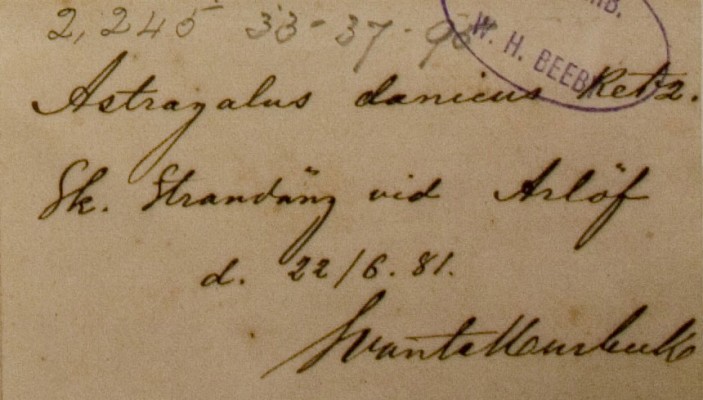 2,245 33-37-96
W. H. BEEBY
Astragalus danicus Retz.
Sk. Strandäng vid Arlöf
d. 22/6. 81.
Svante Murbeck